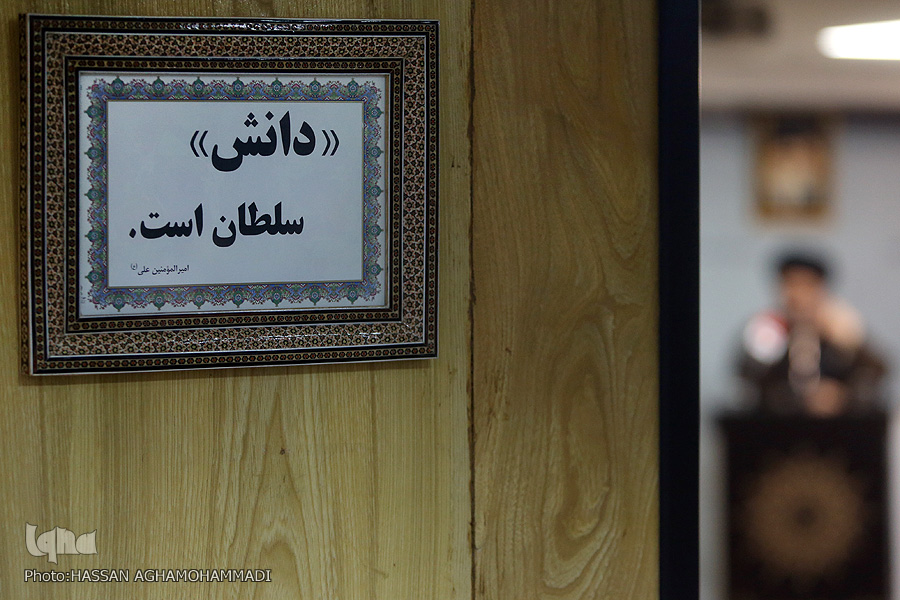 «دانش»
سلطان است.
امیرالمؤمنین علی(ع)
iqna
Photo:HASSAN AGHAMOHAMMADI